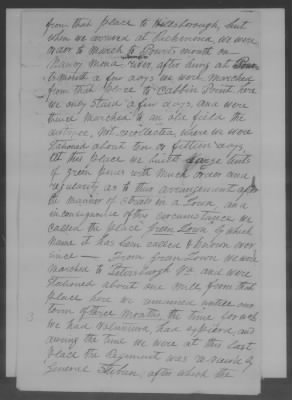 from that place to Hillsborough, but
when we arrived at Richmond, we were
order to march to Pourts month on
River, after being at
month a few days we were marched
from that place to Cabbin Point, here
we only staid a few days, and were
thence marched to an old field the
not recollected, where we were
Stationed about ten or fifteen days,
at this place we built large tents
of green pines with much order and
regularity as to this arrangement after
the manner of Streets in a Town, and
in consequence of this circumstance we
called the place pine Town by which
name it has been called & known ever
since — From pine Town we were
marched to Petersburgh Va and were
stationed about one mile from that
place here we remained until our
term of three months, the time for wh
we had volunteered, had expired, and
during the time we were at this last
place the Regiment was reviewed by
General Stuben, after which the
3